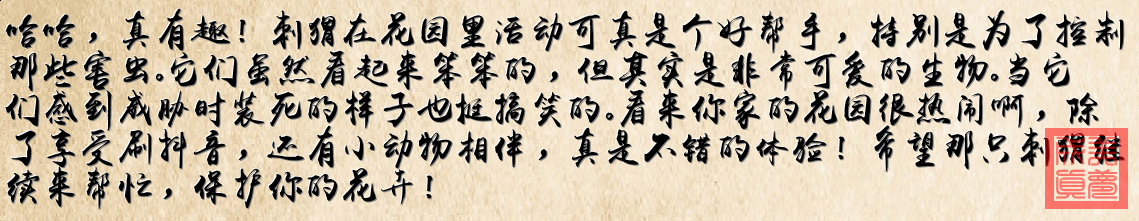 哈哈，真有趣！刺猬在花园里活动可真是个好帮手，特别是为了控制
那些害虫。它们虽然看起来笨笨的，但其实是非常可爱的生物。当它
们感到威胁时装死的样子也挺搞笑的。看来你家的花园很热闹啊，除
了享受刷抖音，还有小动物相伴，真是不错的体验！希望那只刺猬继
续来帮忙，保护你的花卉！